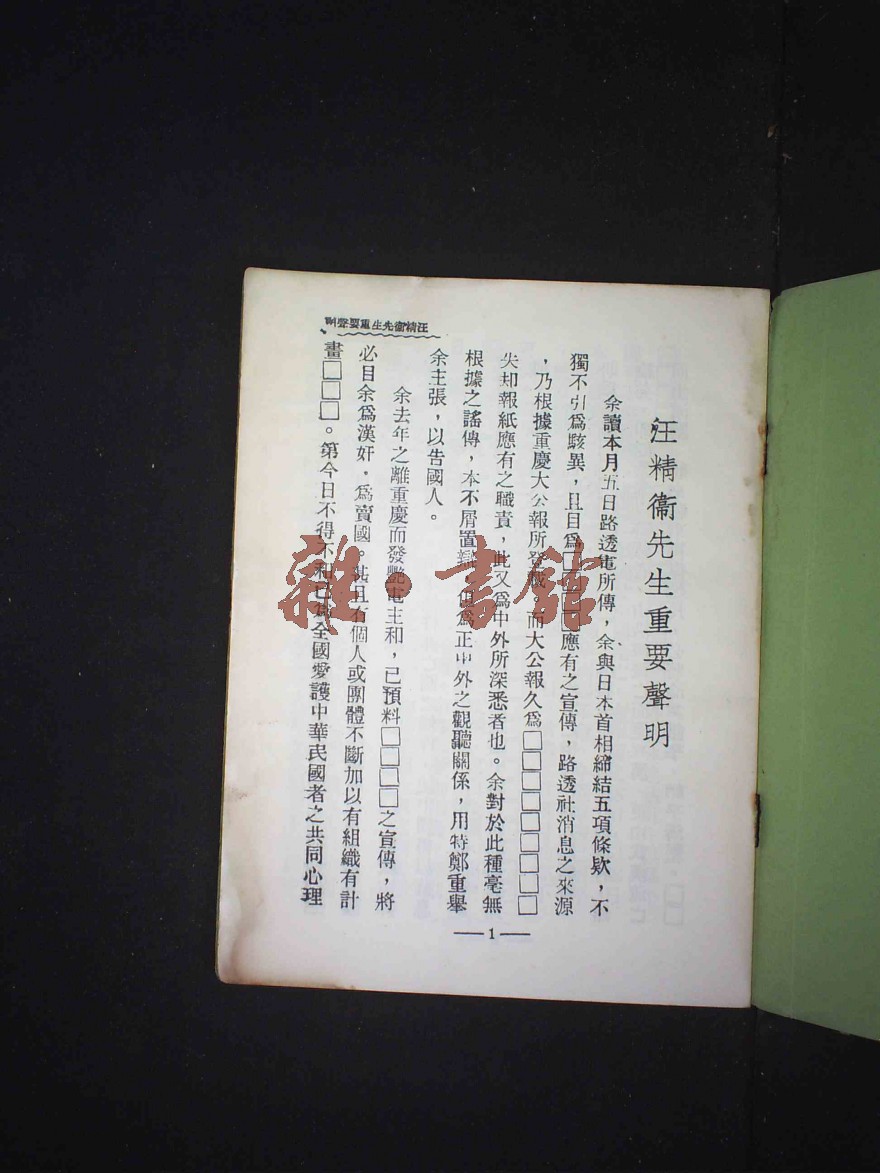 汪精衞先生重要聲明
余讀本月五日路透電所傳，余與日本首相締結五項條欵，不
獨不引爲駭異，且目爲□□□□應有之宣傳，路透社消息之來源
，乃根據重慶大公報所登載，而大公報久爲□□□□□□□□□
失却報紙應有之職責，此又爲中外所深悉者也。余對於此種毫無
根據之謠傳，本不屑置辯，但爲正中外之觀聽關係，用特鄭重舉
余主張，以告國人。
余去年之離重慶而發艷電主和，已預料□□□□之宣傳，將
必目余爲漢奸，爲賣國，甚且有個人或團體不斷加以有組織有計
畫□□□。第今日不得不和已爲全國愛護中華民國者之共同心理
汪精衞先生重要聲明
—1—
雜·書館